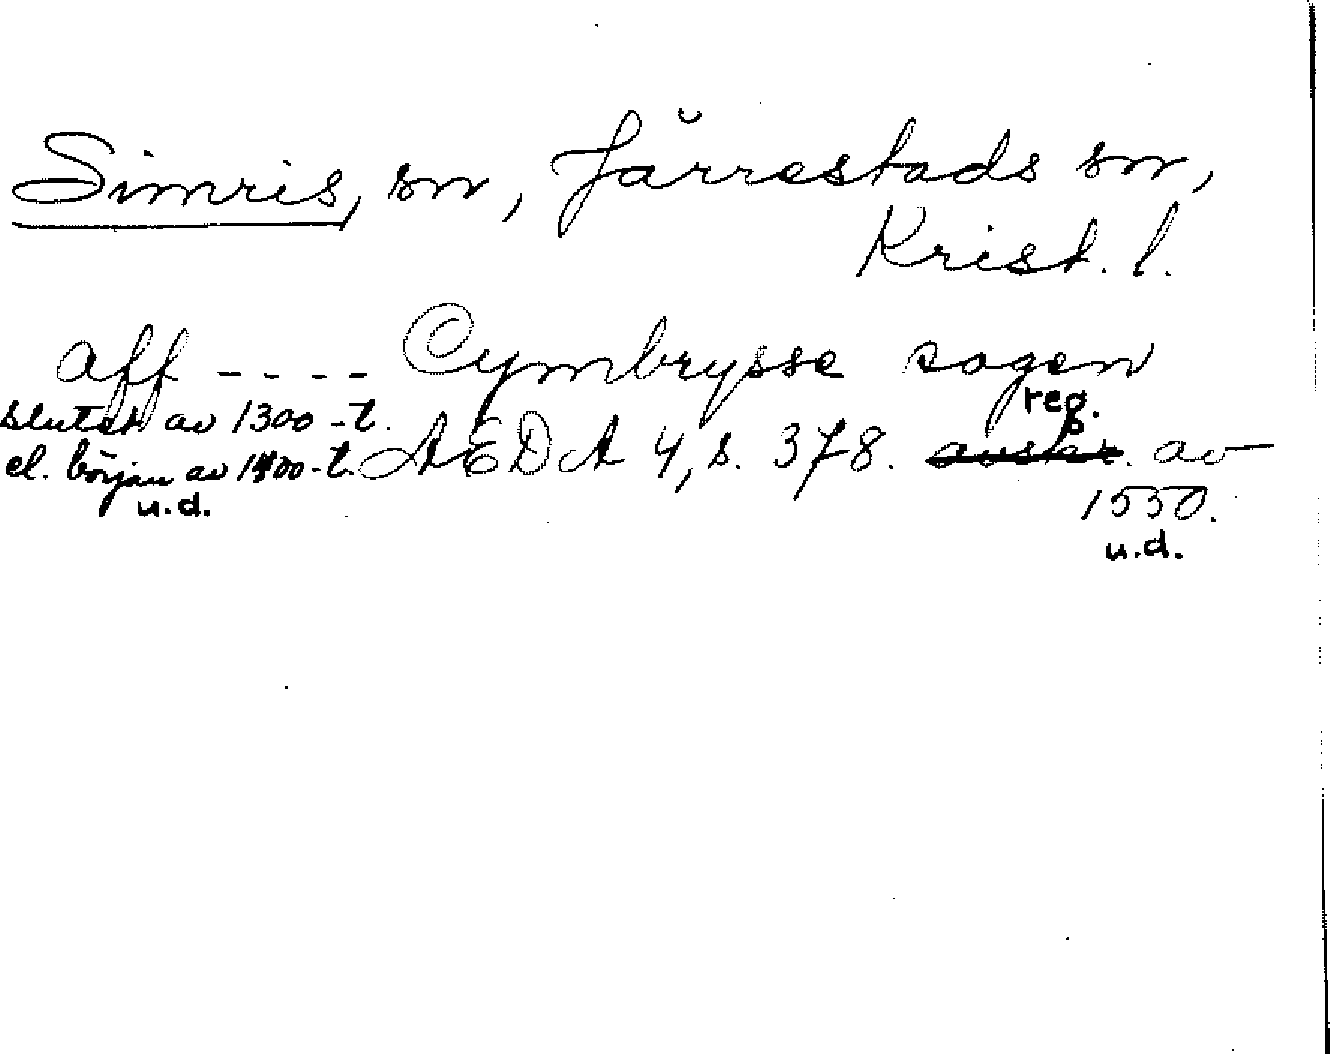 Simris, sn, Järrestads sn,
Krist. l.
aff - - - - Cymbrysse sogen
slutet av 1300-t. reg.
el. början av 1400-t. AEDA 4, s. 378. avskr. av
u.d. 1550.
u.d.